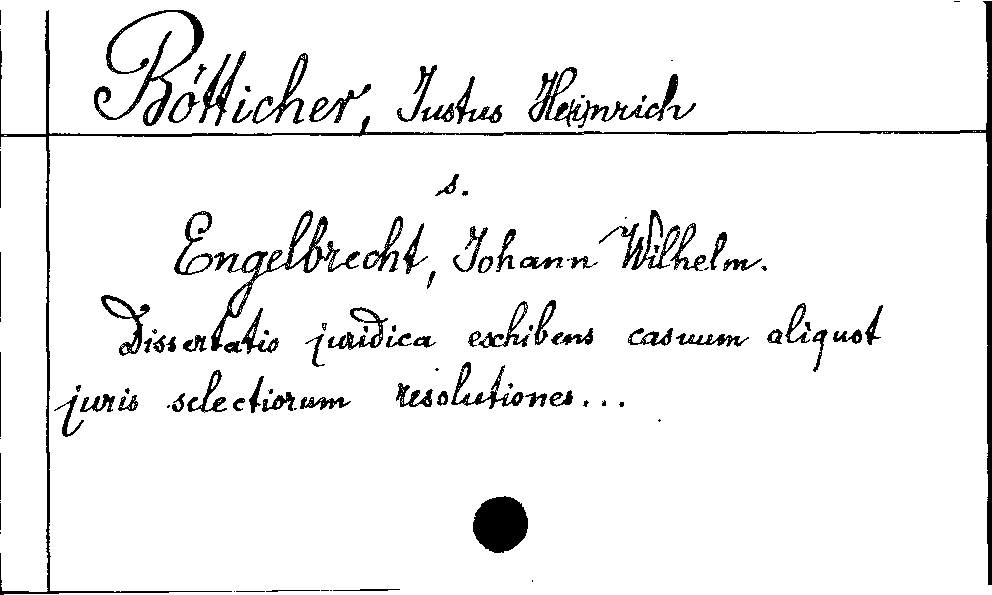 Bötticher, Justus He(i)nrich
s.
Engelbrecht, Johann Wilhelm.
Dissertatio juridica exhibens casuum aliquot
juris selectiorum resolutiones...